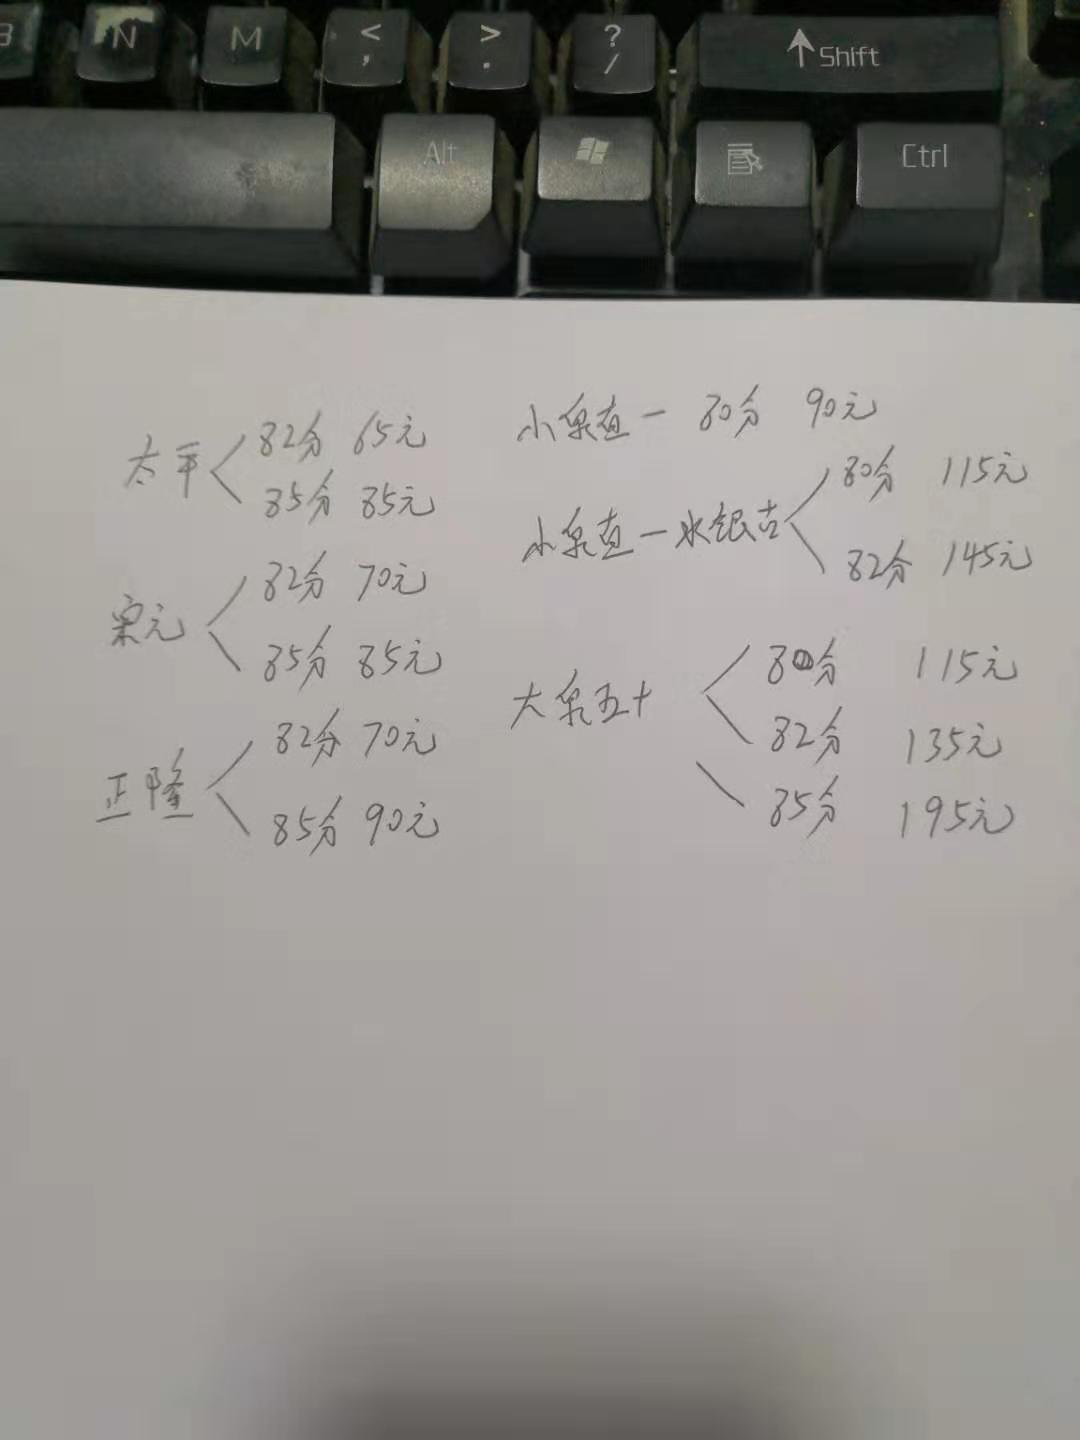 N M < , > . ? / Shift
Alt Ctrl
太平 82分 65元
85分 85元
宋元 82分 70元
85分 85元
正隆 82分 70元
85分 90元
小泉直一 80分 90元
小泉直一水银古 80分 115元
82分 145元
大泉五十 80分 115元
82分 135元
85分 195元